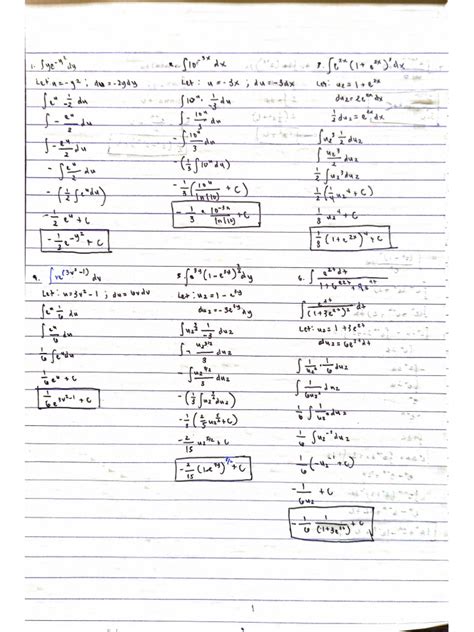 1. ∫ye^-y² dy
Let: u=-y² ; du=-2ydy
∫e^u 1/-2 du
∫- e^u/2 du
∫- e^u/2 du
-∫e^u/2 du
-(1/2 ∫e^u du)
-1/2 e^u + C
-1/2 e^-y² + C
2. ∫10^-3x dx
Let: u=-3x ; du=-3dx
∫10^u · 1/-3 du
∫- 10^u/3 du
-∫10^u/3 du
-(1/3 ∫10^u du)
-1/3 (10^u/ln(10) + C)
-1/3 × 10^-3x/ln(10) + C
3. ∫e^2x (1+e^2x)³ dx
Let: u2=1+e^2x
du2=2e^2x dx
1/2 du2=e^2x dx
∫u2³ 1/2 du2
∫u2³/2 du2
1/2 ∫u2³ du2
1/2 (1/4 u2⁴ + C)
1/8 u2⁴ + C
1/8 (1+e^2x)⁴ + C
4. ∫ve^(3v²-1) dv
Let: u=3v²-1 ; du=6vdv
∫e^u 1/6 du
∫e^u/6 du
1/6 ∫e^u du
1/6 e^u + C
1/6 e^3v²-1 + C
5. ∫e^3y (1-e^3y)^3/2 dy
Let: u2=1-e^3y
du2=-3e^3y dy
∫u2^3/2 1/-3 du2
∫- u2^3/2/3 du2
-∫u2^3/2/3 du2
-(1/3 ∫u2^3/2 du2)
-1/3 (2/5 u2^5/2 + C)
-2/15 u2^5/2 + C
-2/15 (1-e^3y)^5/2 + C
6. ∫e^2t dt
∫e^2t/(1+3e^2t)² dt
Let: u2=1+3e^2t
du2=6e^2t dt
∫1/u2² · 1/6 du2
∫1/6u2² du2
1/6 ∫1/u2² du2
1/6 ∫u2^-2 du2
-1/6u2 + C
1